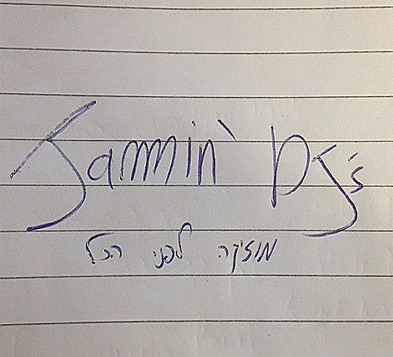 Jammin' DJ's
מוזיקה לפני הכל